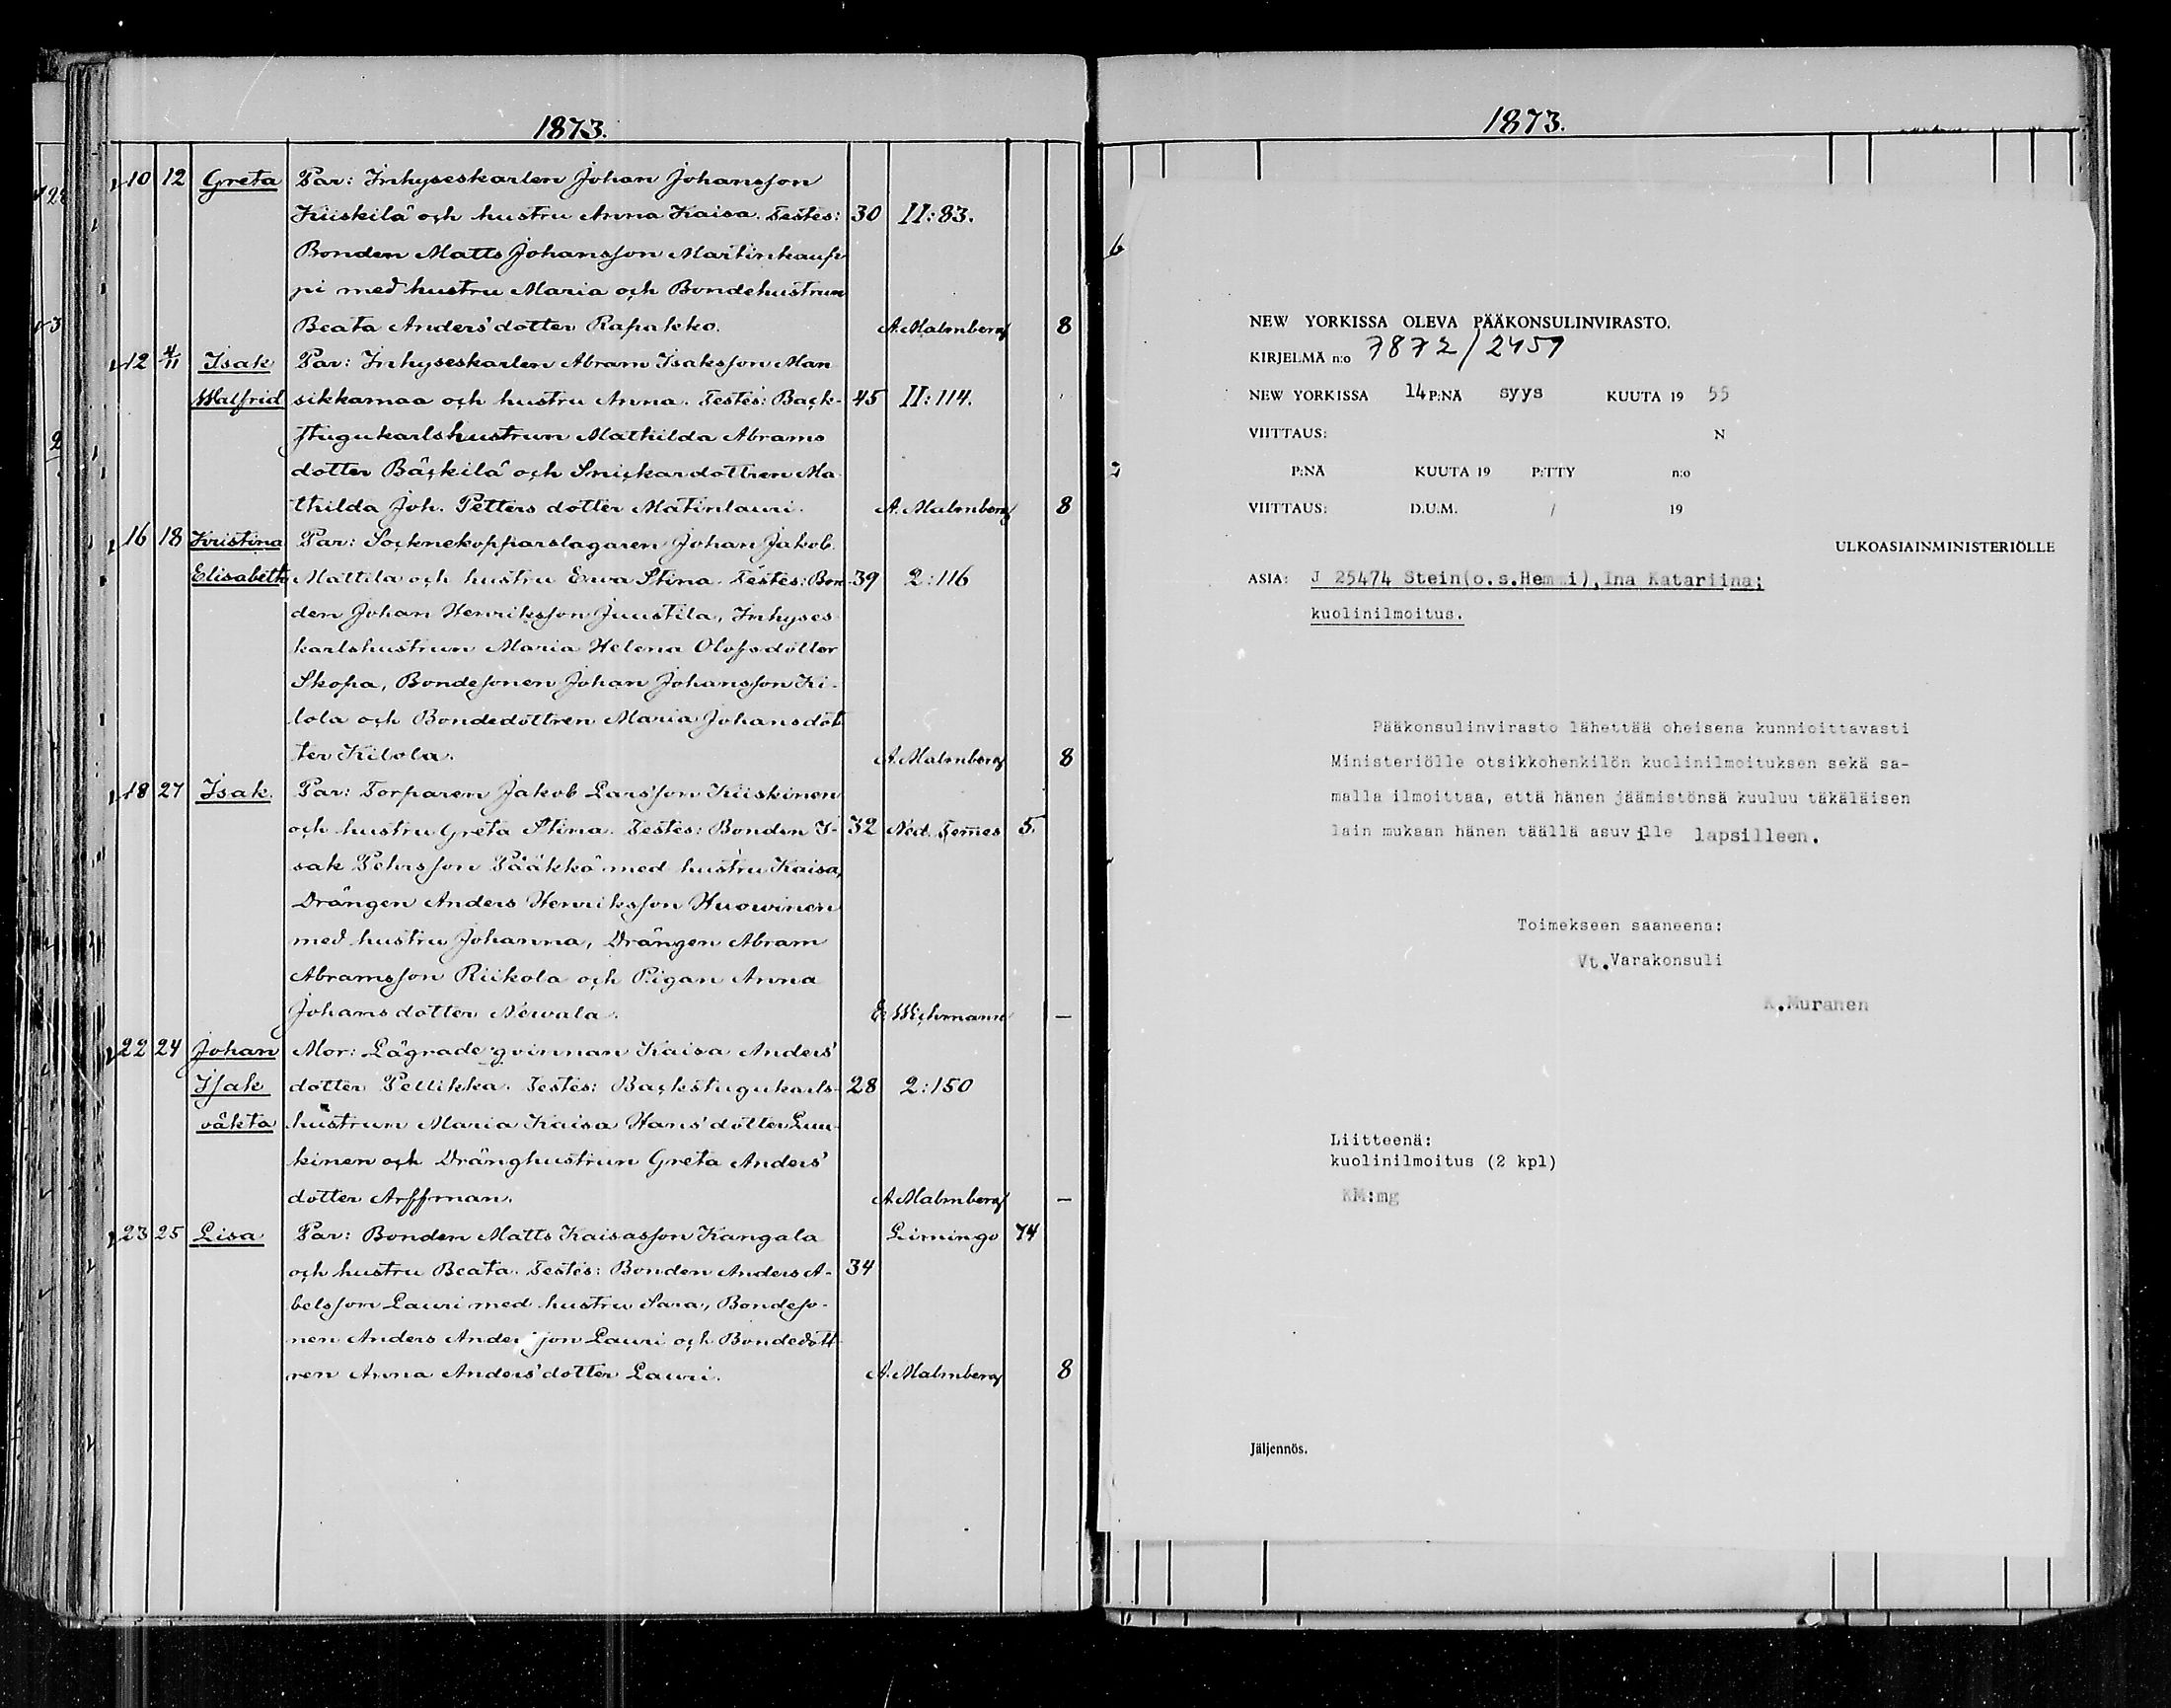 1873.
10 12 Greta Par: Inhyseskarlen Johan Johansson
Kiiskilä och hustru Anna Kaisa. Testes: 30 II:83.
Bonden Matts Johansson Martinkaup
pi med hustru Maria och Bondehustrun
Beata Anders'dotter Rapakko. A. Malmberg 8
12 4/11 Isak Par: Inhyseskarlen Abram Isaksson Man
Walfrid sikkamaa och hustru Anna. Testes: Back- 45 II:114.
stugukarlshustrun Mathilda Abrams
dotter Bäckilä och Snickardottren Ma
thilda Joh. Petters dotter Matinlauri. A. Malmberg 8
16 18 Kristina Par: Socknekopparslagaren Johan Jakob.
Elisabeth Mattila och hustru Ewa Stina. Testes: Bon 39 2:116
den Johan Henriksson Juustila, Inhyses
karlshustrun Maria Helena Olofsdotter
Skopa, Bondesonen Johan Johansson Ki-
lola och Bondedottren Maria Johansdot
ter Kilola. A. Malmberg 8
18 27 Isak Par: Torparen Jakob Larsson Kiiskinen
och hustru Greta Stina. Testes: Bonden I- 32 Ned. Temes 5.
sak Pehrsson Pääkkö med hustru Kaisa,
Drängen Anders Henriksson Huowinen
med hustru Johanna, Drängen Abram
Abramsson Riikola och Pigan Anna
Johansdotter Newala. E. Wichmann —
22 24 Johan Mor: Lägrade qvinnan Kaisa Anders'
Isak dotter Pellikka. Testes: Backstugukarls- 28 2:150
oäkta hustrun Maria Kaisa Hans'dotter Luu-
kinen och Dränghustrun Greta Anders'
dotter Arffman. A. Malmberg —
23 25 Lisa Par: Bonden Matts Kaisasson Kangala Limingo 74
och hustru Beata. Testes: Bonden Anders A- 34
belsson Lauri med hustru Sara, Bondeso-
nen Anders Andersson Lauri och Bondedott
ren Anna Anders'dotter Lauri. A. Malmberg 8
1873.
NEW YORKISSA OLEVA PÄÄKONSULINVIRASTO.
KIRJELMÄ n:o 7872/2451
NEW YORKISSA 14 P:NÄ syys KUUTA 19 55
VIITTAUS: N
P:NÄ KUUTA 19 P:TTY n:o
VIITTAUS: D.U.M. / 19
ULKOASIAINMINISTERIÖLLE
ASIA: J 25474 Stein(o.s.Hemmi),Ina Katariina;
kuolinilmoitus.
Pääkonsulinvirasto lähettää oheisena kunnioittavasti
Ministeriölle otsikkohenkilön kuolinilmoituksen sekä sa-
malla ilmoittaa, että hänen jäämistönsä kuuluu täkäläisen
lain mukaan hänen täällä asuville lapsilleen.
Toimekseen saaneena:
Vt.Varakonsuli
K.Muranen
Liitteenä:
kuolinilmoitus (2 kpl)
KM:mg
Jäljennös.